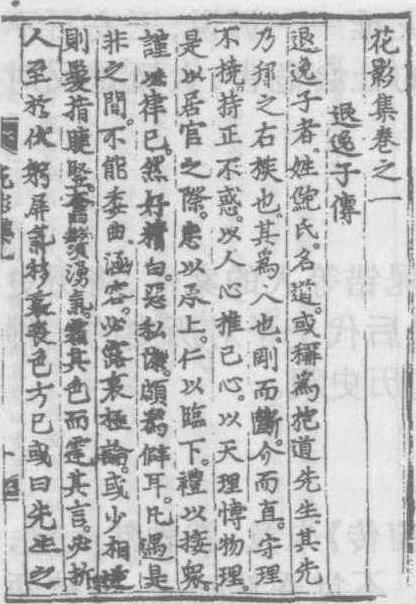 花影集卷之一
退逸子傳
退逸子者。姓鮑氏。名道。或稱爲抱道先生。其先
乃邦之右族也。其爲人也。剛而斷。介而直。守理
不撓。持正不惑。以人心推己心。以天理博物理。
是以居官之際。忠以承上。仁以臨下。禮以接衆。
謹以律己。然好精白。惡私隱。頗爲僻耳。凡遇是
非之間。不能委曲涵容。必露衷極論。或少相
則髮指睫竪。奮髯湧氣。霜其色而霆其言。必折
人至於伏躬屏氣衫喪色方已或曰先生之